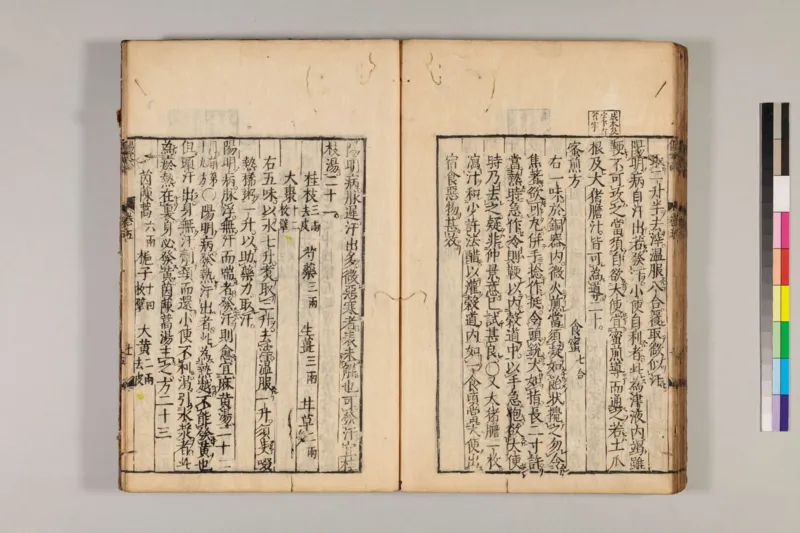 取二升半去滓溫服八合覆取微似汗
陽明病自汗出若發汗小便自利者此為津液內竭雖
鞕不可攻之當須自欲大便宜蜜煎導而通之若土瓜
根及大猪膽汁皆可為導二十
蜜煎方
食蜜七合
右一味於銅器內微火煎當須凝如飴狀攪之勿令
焦著欲可丸併手捻作挺令頭銳大如指長二寸許
當熱時急作冷則鞕以內穀道中以手急抱欲大便
時乃去之疑非仲景意已試甚良〇又大猪膽一枚
瀉汁和少許法醋以灌穀道內如一食頃當大便出
宿食惡物甚效
陽明病脉遲汗出多微惡寒者表未解也可發汗宜桂
枝湯二十一
桂枝三兩去皮 芍藥三兩 生薑三兩 甘草二兩
大棗十二枚擘
右五味以水七升煮取三升去滓溫服一升須臾啜
熱稀粥一升以助藥力取汗
陽明病脉浮無汗而喘者發汗則愈宜麻黃湯二十二
〇陽明病發熱汗出者此為熱越不能發黃也
但頭汗出身無汗劑頸而還小便不利渴引水漿者此
為瘀熱在裏身必發黃茵陳蒿湯主之方二十三
茵陳蒿六兩 梔子十四枚擘 大黃二兩去皮